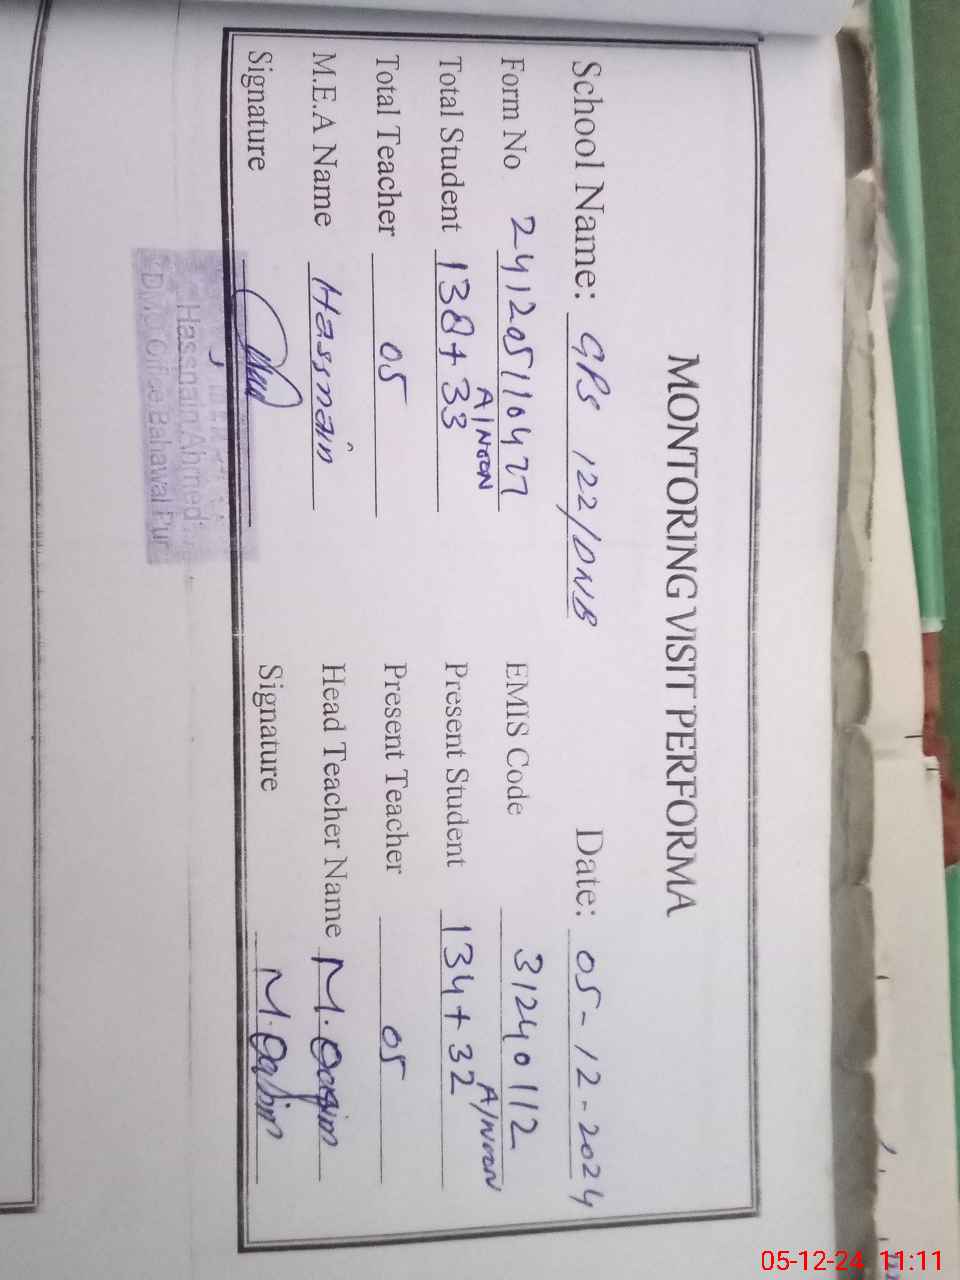 MONTORING VISIT PERFORMA
School Name: GPS 122/DNB Date: 05-12-2024
Form No 241205110477 EMIS Code 31240112
Total Student 138+33 A/NOON Present Student 134+32 A/NOON
Total Teacher 05 Present Teacher 05
M.E.A Name Hassnain Head Teacher Name M. Qasim
Signature Signature M. Qasim
Hasnain Ahmed
Bahawal Pur
05-12-24 11:11